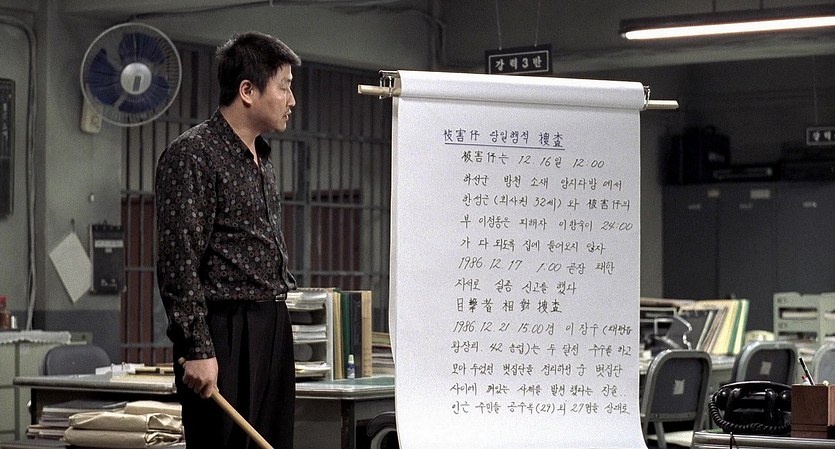 강력3반
被害者 당일행적 搜査
被害者는 12.16일 12:00
화산군 방천 소재 양지다방 에서
한성근 (회사원 32세) 와 被害者의
부 이성동은 피해자 이향숙이 24:00
가 다 되도록 집에 돌아오지 않자
1986.12.17 1:00 곧장 태안
지서로 실종 신고를 했다
目擊者 相對 搜査
1986.12.21 15:00경 이 장수 (태령읍
황장리. 42 농업)는 두 달전 수수를 하고
모아 두었던 볏짚단을 정리하던 중 볏짚단
사이에 끼있는 사체를 발견 했다는 진술..
인근 주민들 공수옥(29) 외 27명을 상대로